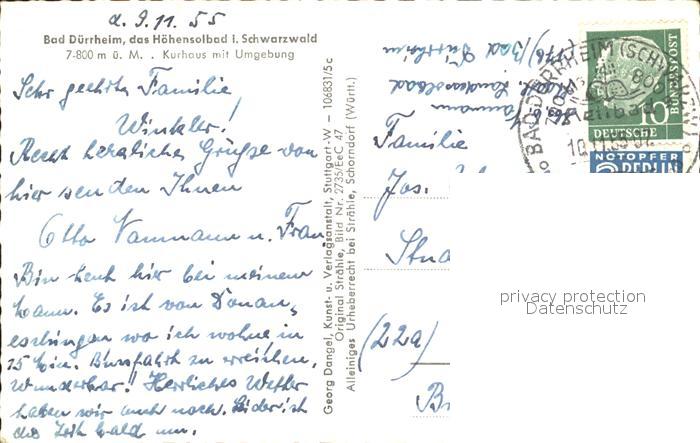 d. 9.11.55
Bad Dürrheim, das Höhensolbad i. Schwarzwald
7-800 m ü. M. . Kurhaus mit Umgebung
Sehr geehrte Familie
Winkler!
Recht herzliche Grüsse von
hier senden Ihnen
Otto Vanmann u. Frau.
Bin heut hier bei meinem
Mann. Es ist von Donau-
eschingen wo ich wohne in
15 Min. Busfahrt zu erreichen.
Wunderbar! Herrliches Wetter
haben wir auch noch. Leider ist
die Zeit bald um.
Georg Dangel, Kunst- u. Verlagsanstalt, Stuttgart-W - 106831/5c
Original Strähle, Bild Nr. 2735/EeC 47
Alleiniges Urheberrecht bei Strähle, Schorndorf (Württ.)
Landessolbad
Bad Dürrheim
BAD DÜRRHEIM (SCHW
10
DEUTSCHE
BUNDESPOST
NOTOPFER
BERLIN
Familie
Jos.
(22a)
privacy protection
Datenschutz